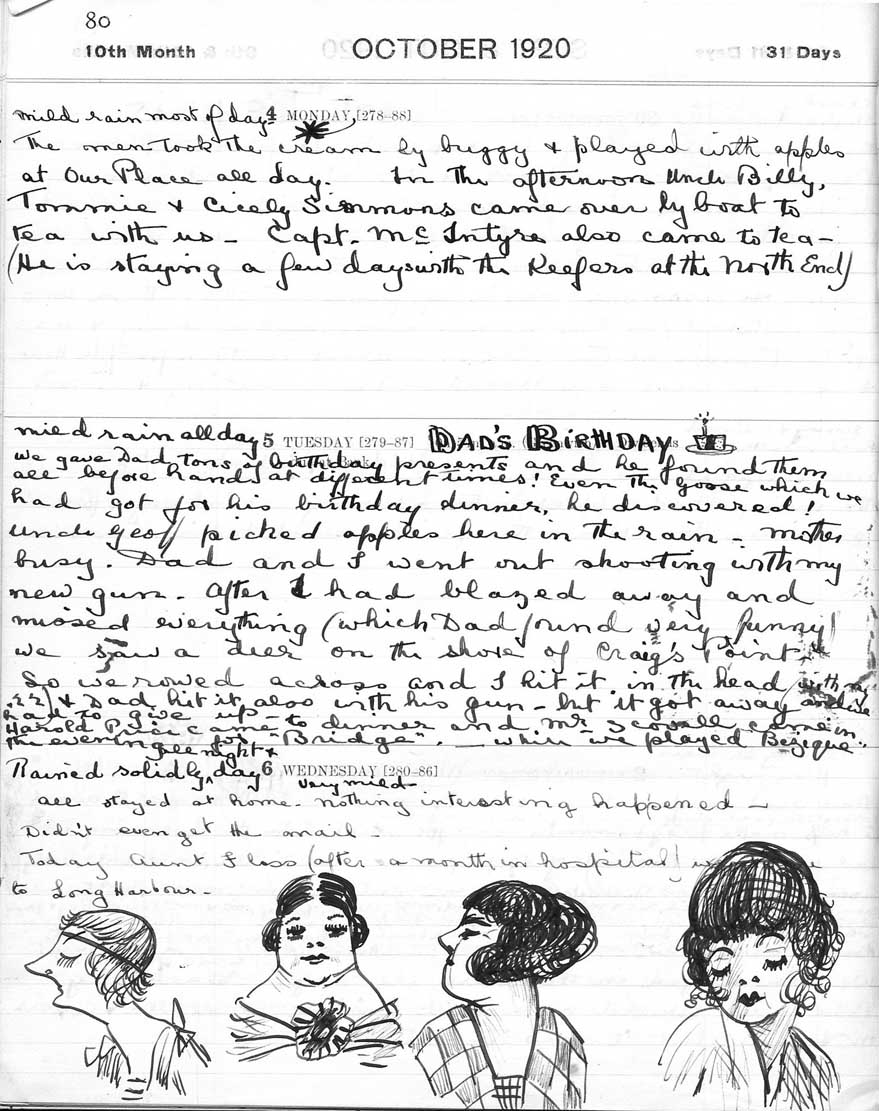 80
10th Month OCTOBER 1920 31 Days
mild rain most of day 4 MONDAY [278-88]
The men took the cream by buggy & played with apples
at Our Place all day. In the afternoon Uncle Billy,
Tommie & Cicely Simmons came over by boat to
tea with us - Capt. McIntyre also came to tea -
(He is staying a few days with the Keefers at the North End)
mild rain all day 5 TUESDAY [279-87] DAD'S BIRTHDAY
we gave Dad tons of birthday presents and he found them
all before hand at different times! Even the goose which we
had got for his birthday dinner, he discovered!
Uncle Geoff picked apples here in the rain - Mother
busy. Dad and I went out shooting with my
new gun. After I had blazed away and
missed everything (which Dad found very funny)
we saw a deer on the shore of Craig's Point
So we rowed across and I hit it in the head with my
.22) & Dad hit it also with his gun - but it got away and we
had to give up -
Harold Price came to dinner and Mr. Scovell came in
the evening for "Bridge". - while we played Bezique
Rained solidly all night & day 6 WEDNESDAY [280-86]
very mild -
all stayed at home - nothing interesting happened -
Didn't even get the mail -
Today Aunt Floss (after a month in hospital)
to Long Harbour -